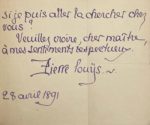 si je puis aller la chercher chez
vous ?
Veuillez croire, cher maître,
à mes sentiments respectueux.
Pierre Louÿs
28 avril 1891